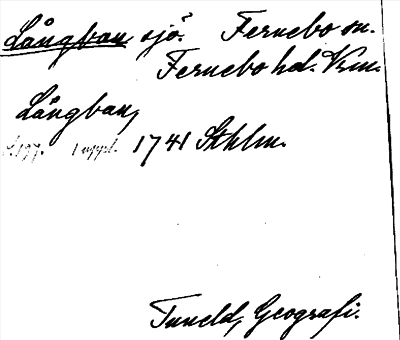 Långban, sjö. Fernebo sn.
Fernebo hd. Vrm.
Långban,
s. 197. 1 uppl. 1741 Sthlm.
Tuneld, Geografi.